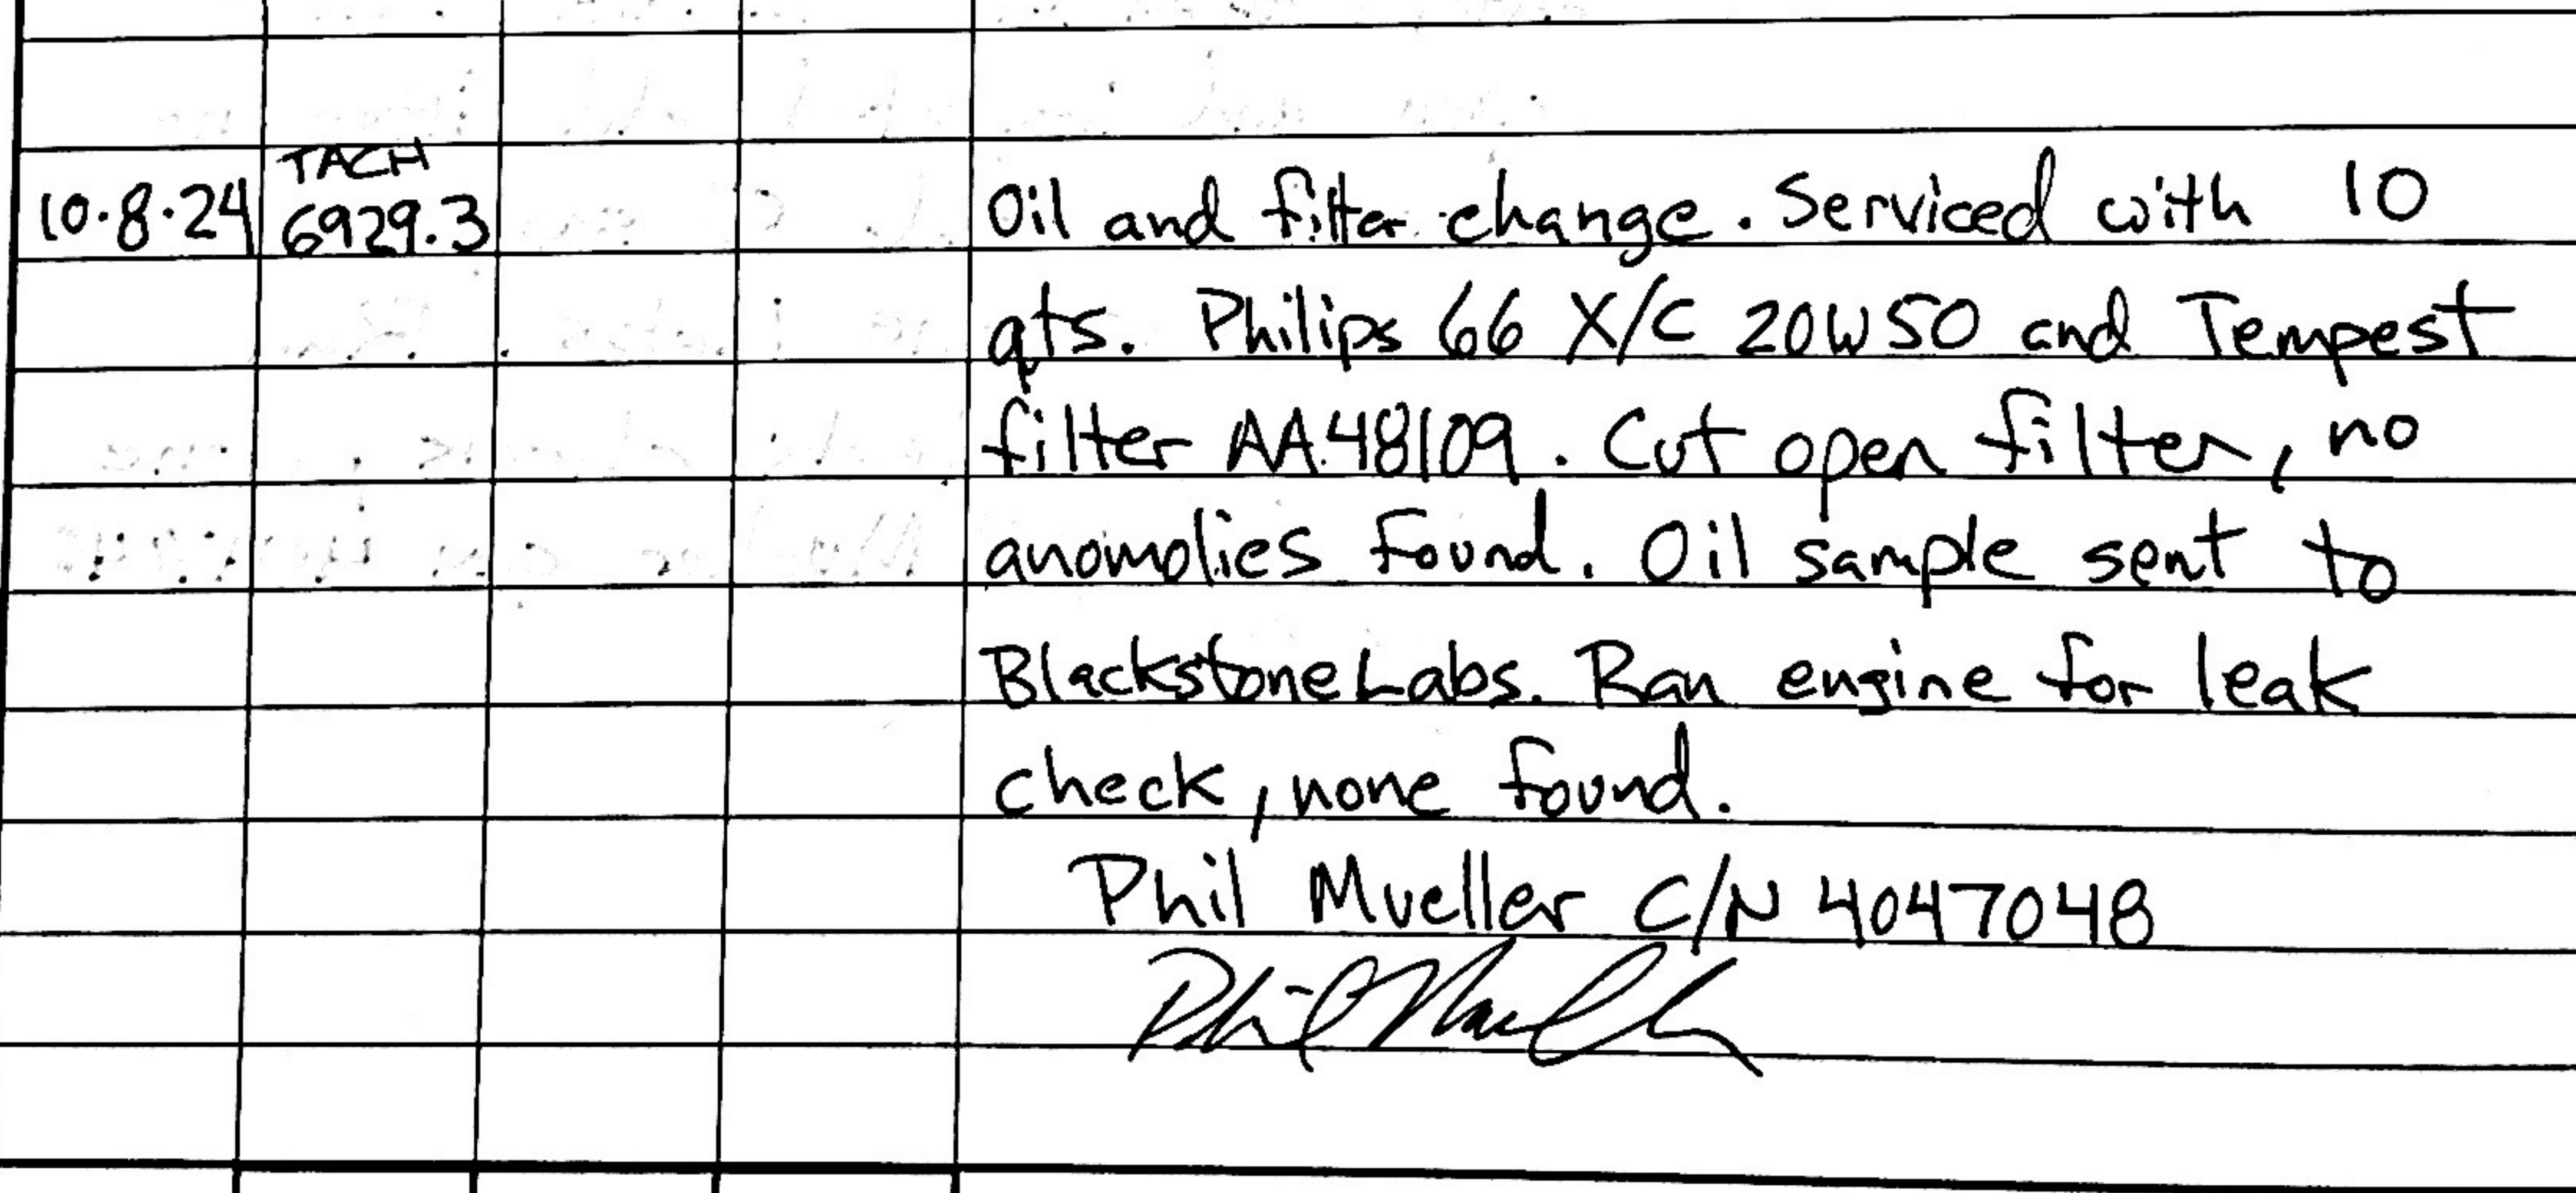 TACH
10.8.24 6929.3 Oil and filter change. Serviced with 10
qts. Philips 66 X/C 20W50 and Tempest
filter AA48109. Cut open filter, no
anomolies found. Oil sample sent to
Blackstone Labs. Ran engine for leak
check, none found.
Phil Mueller C/N 4047048
Phil Mueller